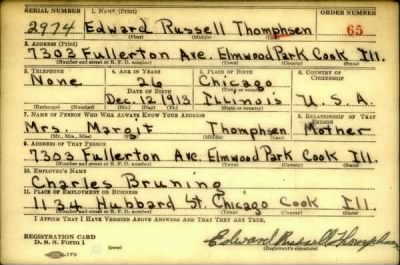 SERIAL NUMBER 1. NAME (Print) ORDER NUMBER
2974 Edward Russell Thomphsen 65
(First) (Middle) (Last)
2. ADDRESS (Print)
7303 Fullerton Ave. Elmwood Park Cook Ill.
(Number and street or R. F. D. number) (Town) (County) (State)
3. TELEPHONE 4. AGE IN YEARS 5. PLACE OF BIRTH 6. COUNTRY OF CITIZENSHIP
None 26 Chicago
DATE OF BIRTH
Dec. 12 1913 Illinois U.S.A.
(Exchange) (Number) (Mo.) (Day) (Yr.) (State or country)
7. NAME OF PERSON WHO WILL ALWAYS KNOW YOUR ADDRESS 8. RELATIONSHIP OF THAT PERSON
Mrs. Margit Thomphsen Mother
(Mr., Mrs., Miss) (First) (Middle) (Last)
9. ADDRESS OF THAT PERSON
7303 Fullerton Ave. Elmwood Park Cook Ill.
(Number and street or R. F. D. number) (Town) (County) (State)
10. EMPLOYER'S NAME
Charles Bruning
11. PLACE OF EMPLOYMENT OR BUSINESS
1134 Hubbard St. Chicago Cook Ill.
(Number and street or R. F. D. number) (Town) (County) (State)
I AFFIRM THAT I HAVE VERIFIED ABOVE ANSWERS AND THAT THEY ARE TRUE.
REGISTRATION CARD
D. S. S. Form 1 Edward Russell Thomphsen
(Registrant's signature)